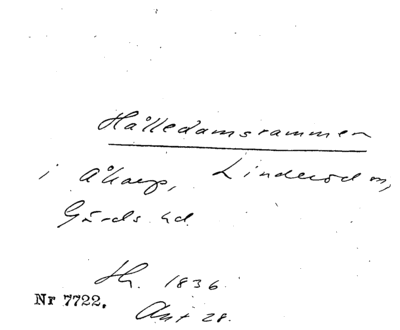 Hålledamsrammen
i Åkarp, Linderöd sn,
Gärds hd.
Sk. 1836
Nr 7722.
Akt 28.